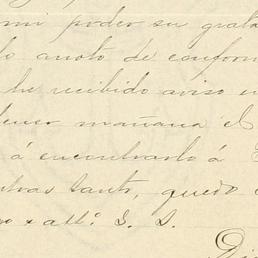 mi poder su grata
lo anoto de conform
he recibido aviso
mañana el
á encontrarlo á
tanto, quedo
S. S.